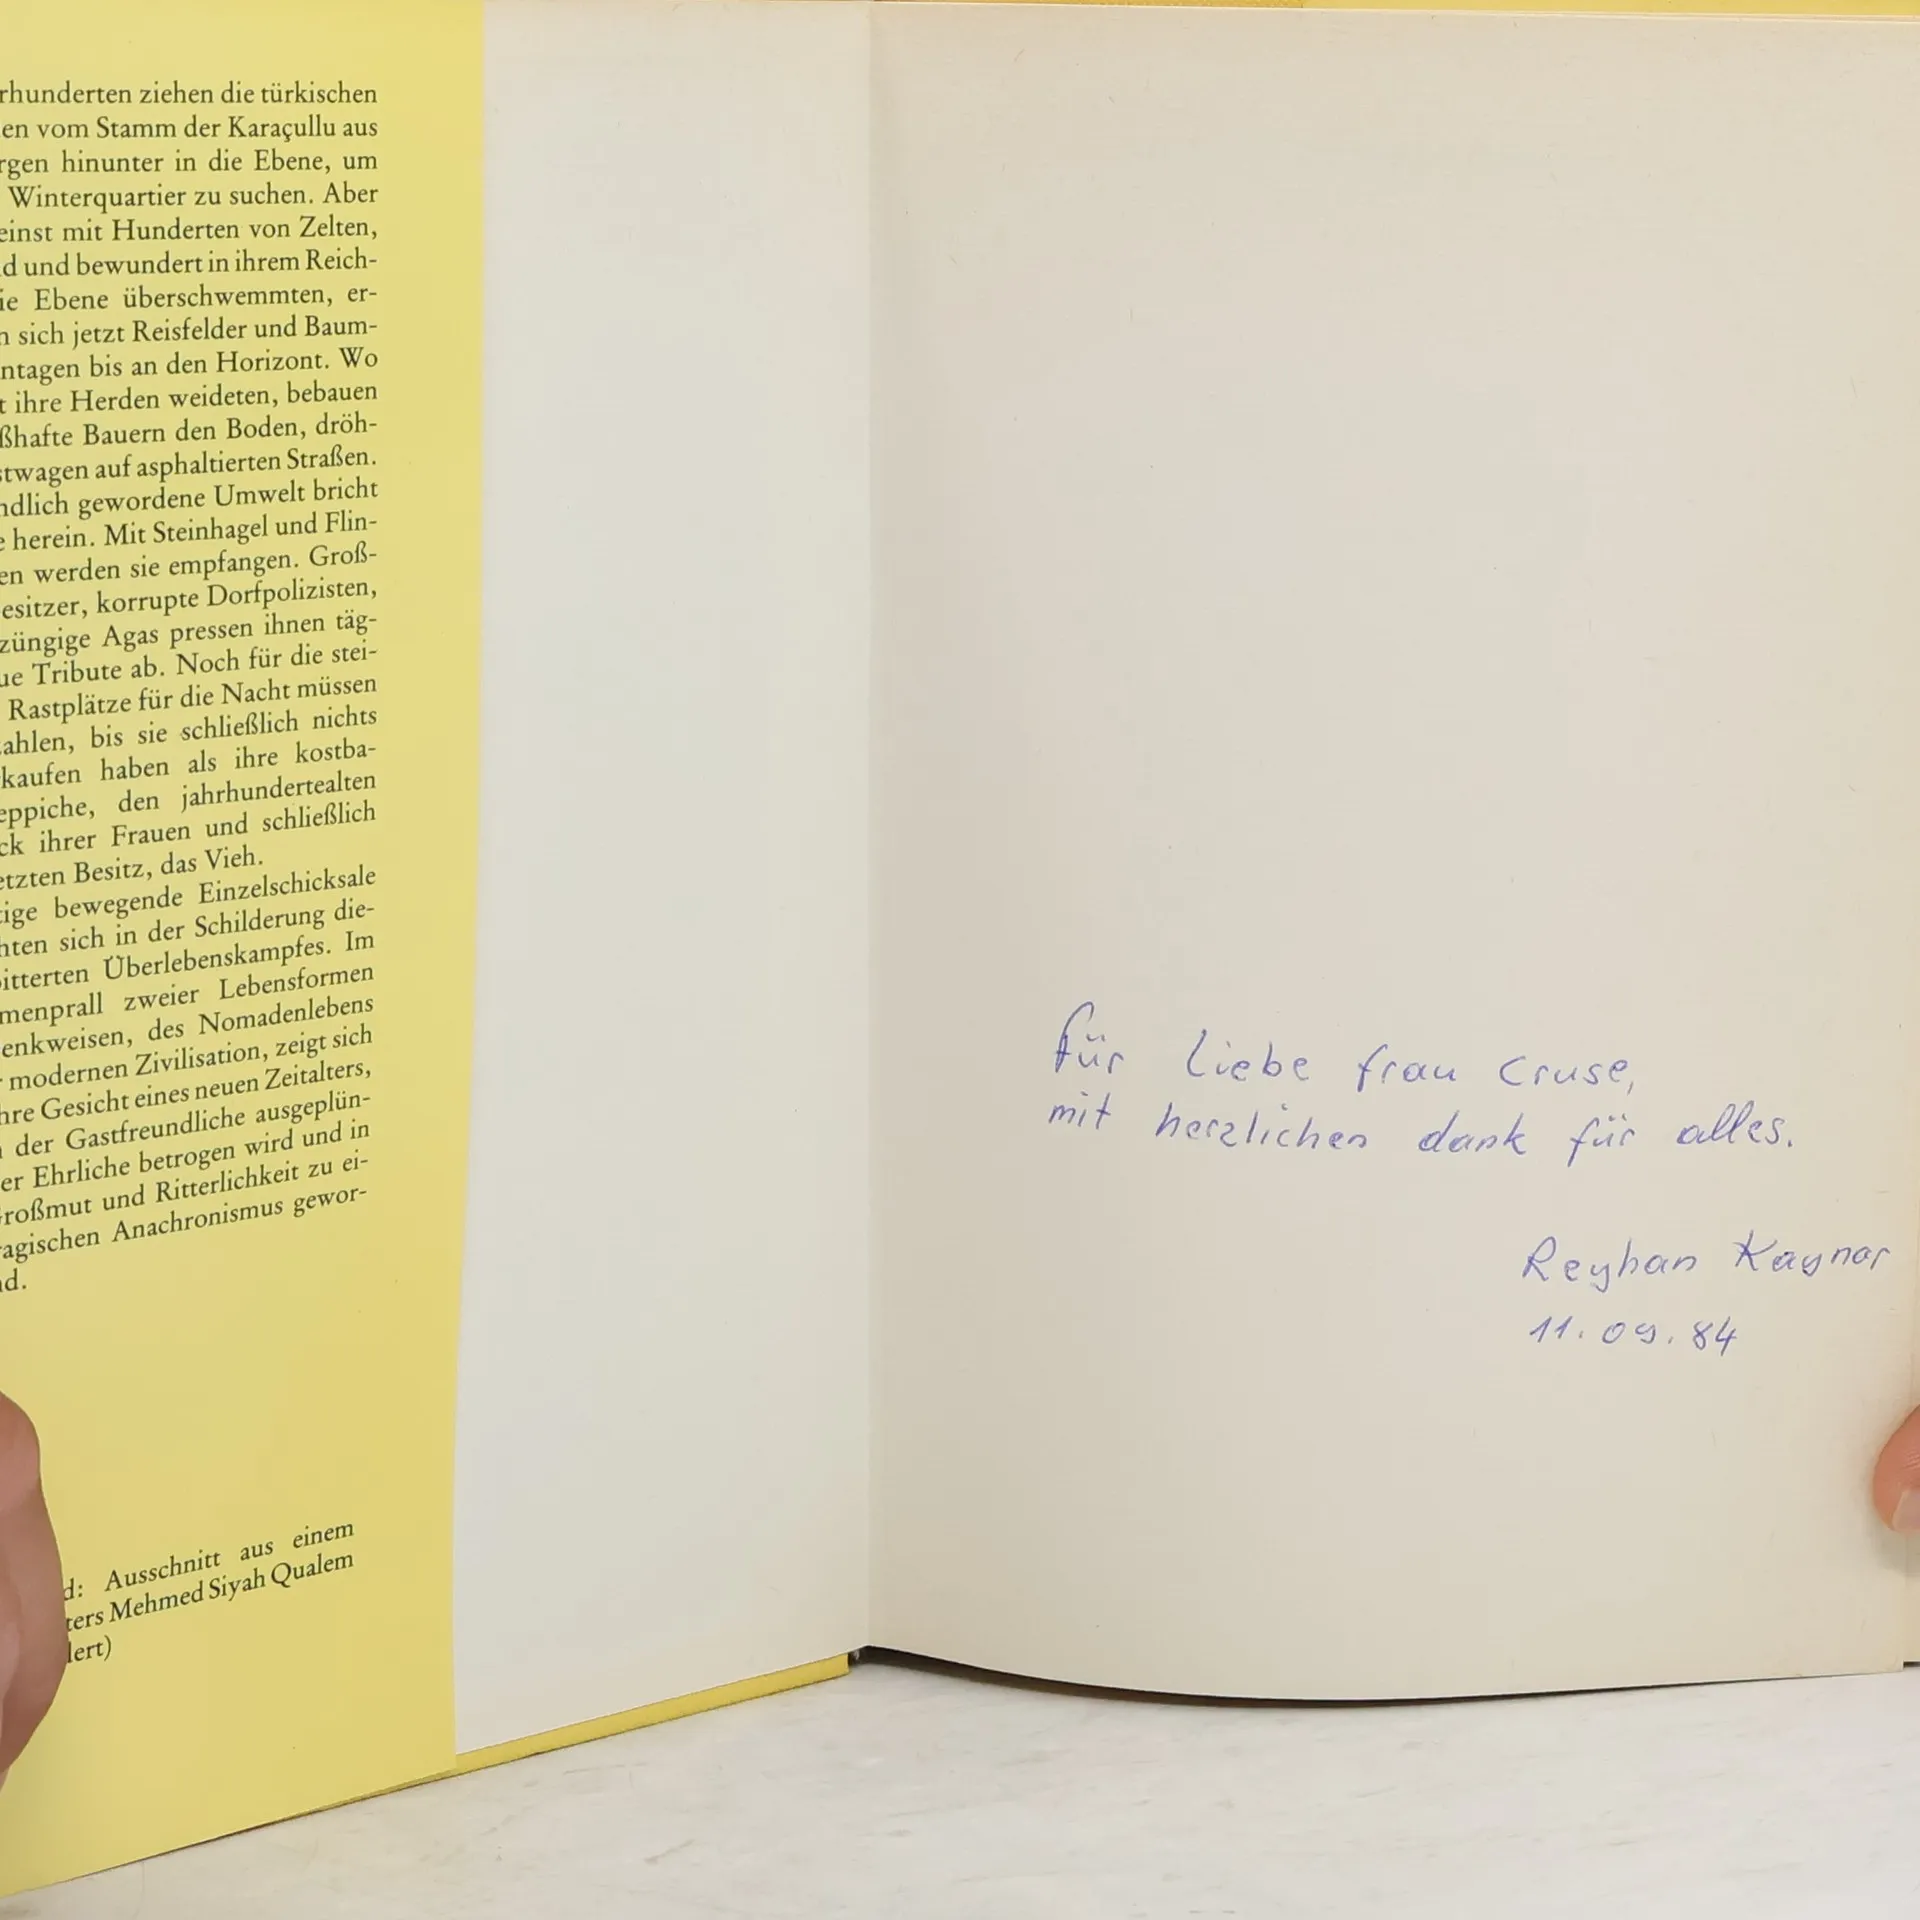 rhunderten ziehen die türkischen
en vom Stamm der Karaçullu aus
rgen hinunter in die Ebene, um
Winterquartier zu suchen. Aber
einst mit Hunderten von Zelten,
d und bewundert in ihrem Reich-
ie Ebene überschwemmten, er-
n sich jetzt Reisfelder und Baum-
ntagen bis an den Horizont. Wo
t ihre Herden weideten, bebauen
ßhafte Bauern den Boden, dröh-
stwagen auf asphaltierten Straßen.
ndlich gewordene Umwelt bricht
e herein. Mit Steinhagel und Flin-
en werden sie empfangen. Groß-
esitzer, korrupte Dorfpolizisten,
züngige Agas pressen ihnen täg-
ue Tribute ab. Noch für die stei-
Rastplätze für die Nacht müssen
ahlen, bis sie schließlich nichts
kaufen haben als ihre kostba-
eppiche, den jahrhundertealten
ck ihrer Frauen und schließlich
etzten Besitz, das Vieh.
tige bewegende Einzelschicksale
hten sich in der Schilderung die-
bitterten Überlebenskampfes. Im
menprall zweier Lebensformen
enkweisen, des Nomadenlebens
r modernen Zivilisation, zeigt sich
hre Gesicht eines neuen Zeitalters,
n der Gastfreundliche ausgeplün-
er Ehrliche betrogen wird und in
Großmut und Ritterlichkeit zu ei-
ragischen Anachronismus gewor-
nd.
d: Ausschnitt aus einem
ters Mehmed Siyah Qualem
lert)
für Liebe frau Cruse,
mit herzlichen dank für alles.
Reyhan Kaynar
11.09.84